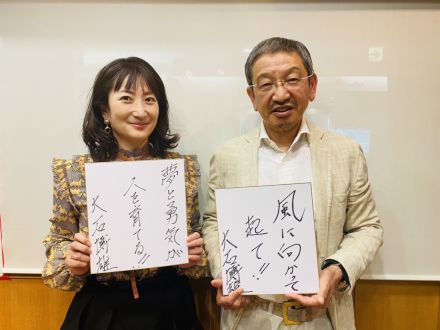 夢と勇気が
人を育てる!!
大石
風に向かって
起て!!
大石